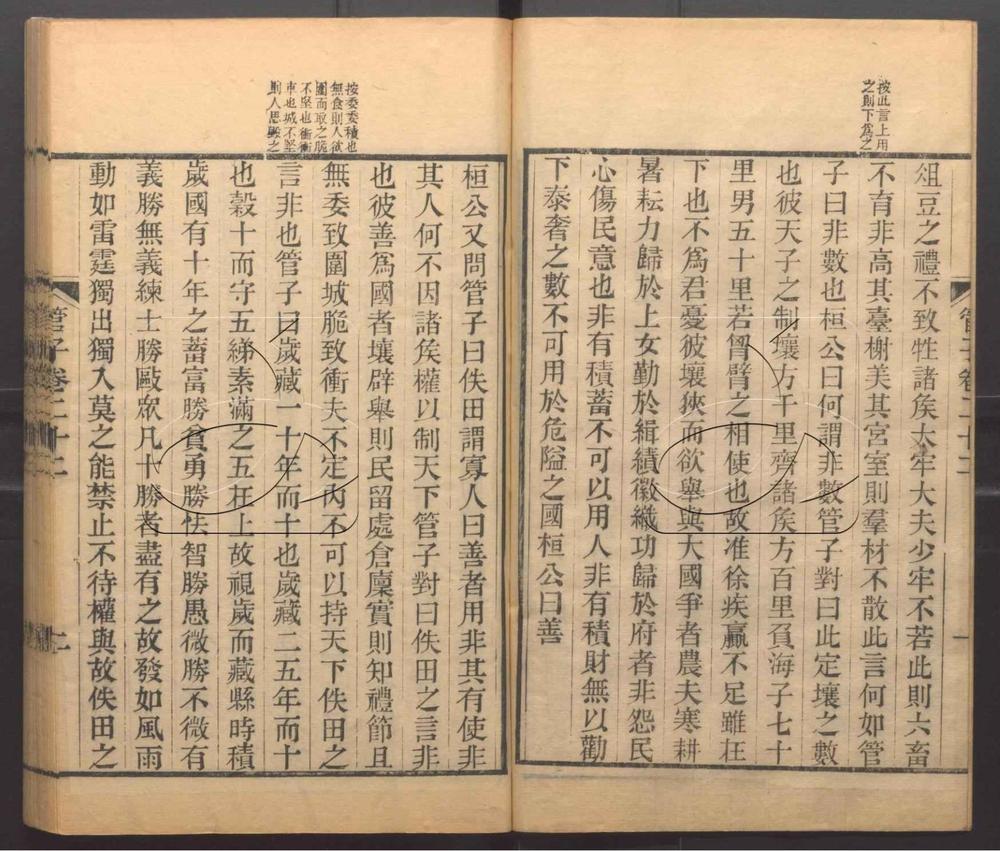 按此言上用
之則下爲之
俎豆之禮不致牲諸矦大牢大夫少牢不若此則六畜
不育非高其臺榭美其宮室則羣材不散此言何如管
子曰非數也桓公曰何謂非數管子對曰此定壤之數
也彼天子之制壤方千里齊諸矦方百里負海子七十
里男五十里若胷臂之相使也故准徐疾贏不足雖在
下也不爲君憂彼壤狹而欲舉與大國爭者農夫寒耕
暑耘力歸於上女勤於緝績徽織功歸於府者非怨民
心傷民意也非有積蓄不可以用人非有積財無以勸
下泰奢之數不可用於危隘之國桓公曰善
管子卷二十二
一
按委委積也
無食則人欲
圍而取之脆
不堅也衝衝
車也城不堅
則人思毀之
桓公又問管子曰佚田謂寡人曰善者用非其有使非
其人何不因諸矦權以制天下管子對曰佚田之言非
也彼善爲國者壤辟舉則民留處倉廩實則知禮節且
無委致圍城脆致衝夫不定內不可以持天下佚田之
言非也管子曰歲藏一十年而十也歲藏二五年而十
也穀十而守五綈素滿之五在上故視歲而藏縣時積
歲國有十年之蓄富勝貧勇勝怯智勝愚微勝不微有
義勝無義練士勝敺眾凡十勝者盡有之故發如風雨
動如雷霆獨出獨入莫之能禁止不待權與故佚田之
管子卷二十二
二